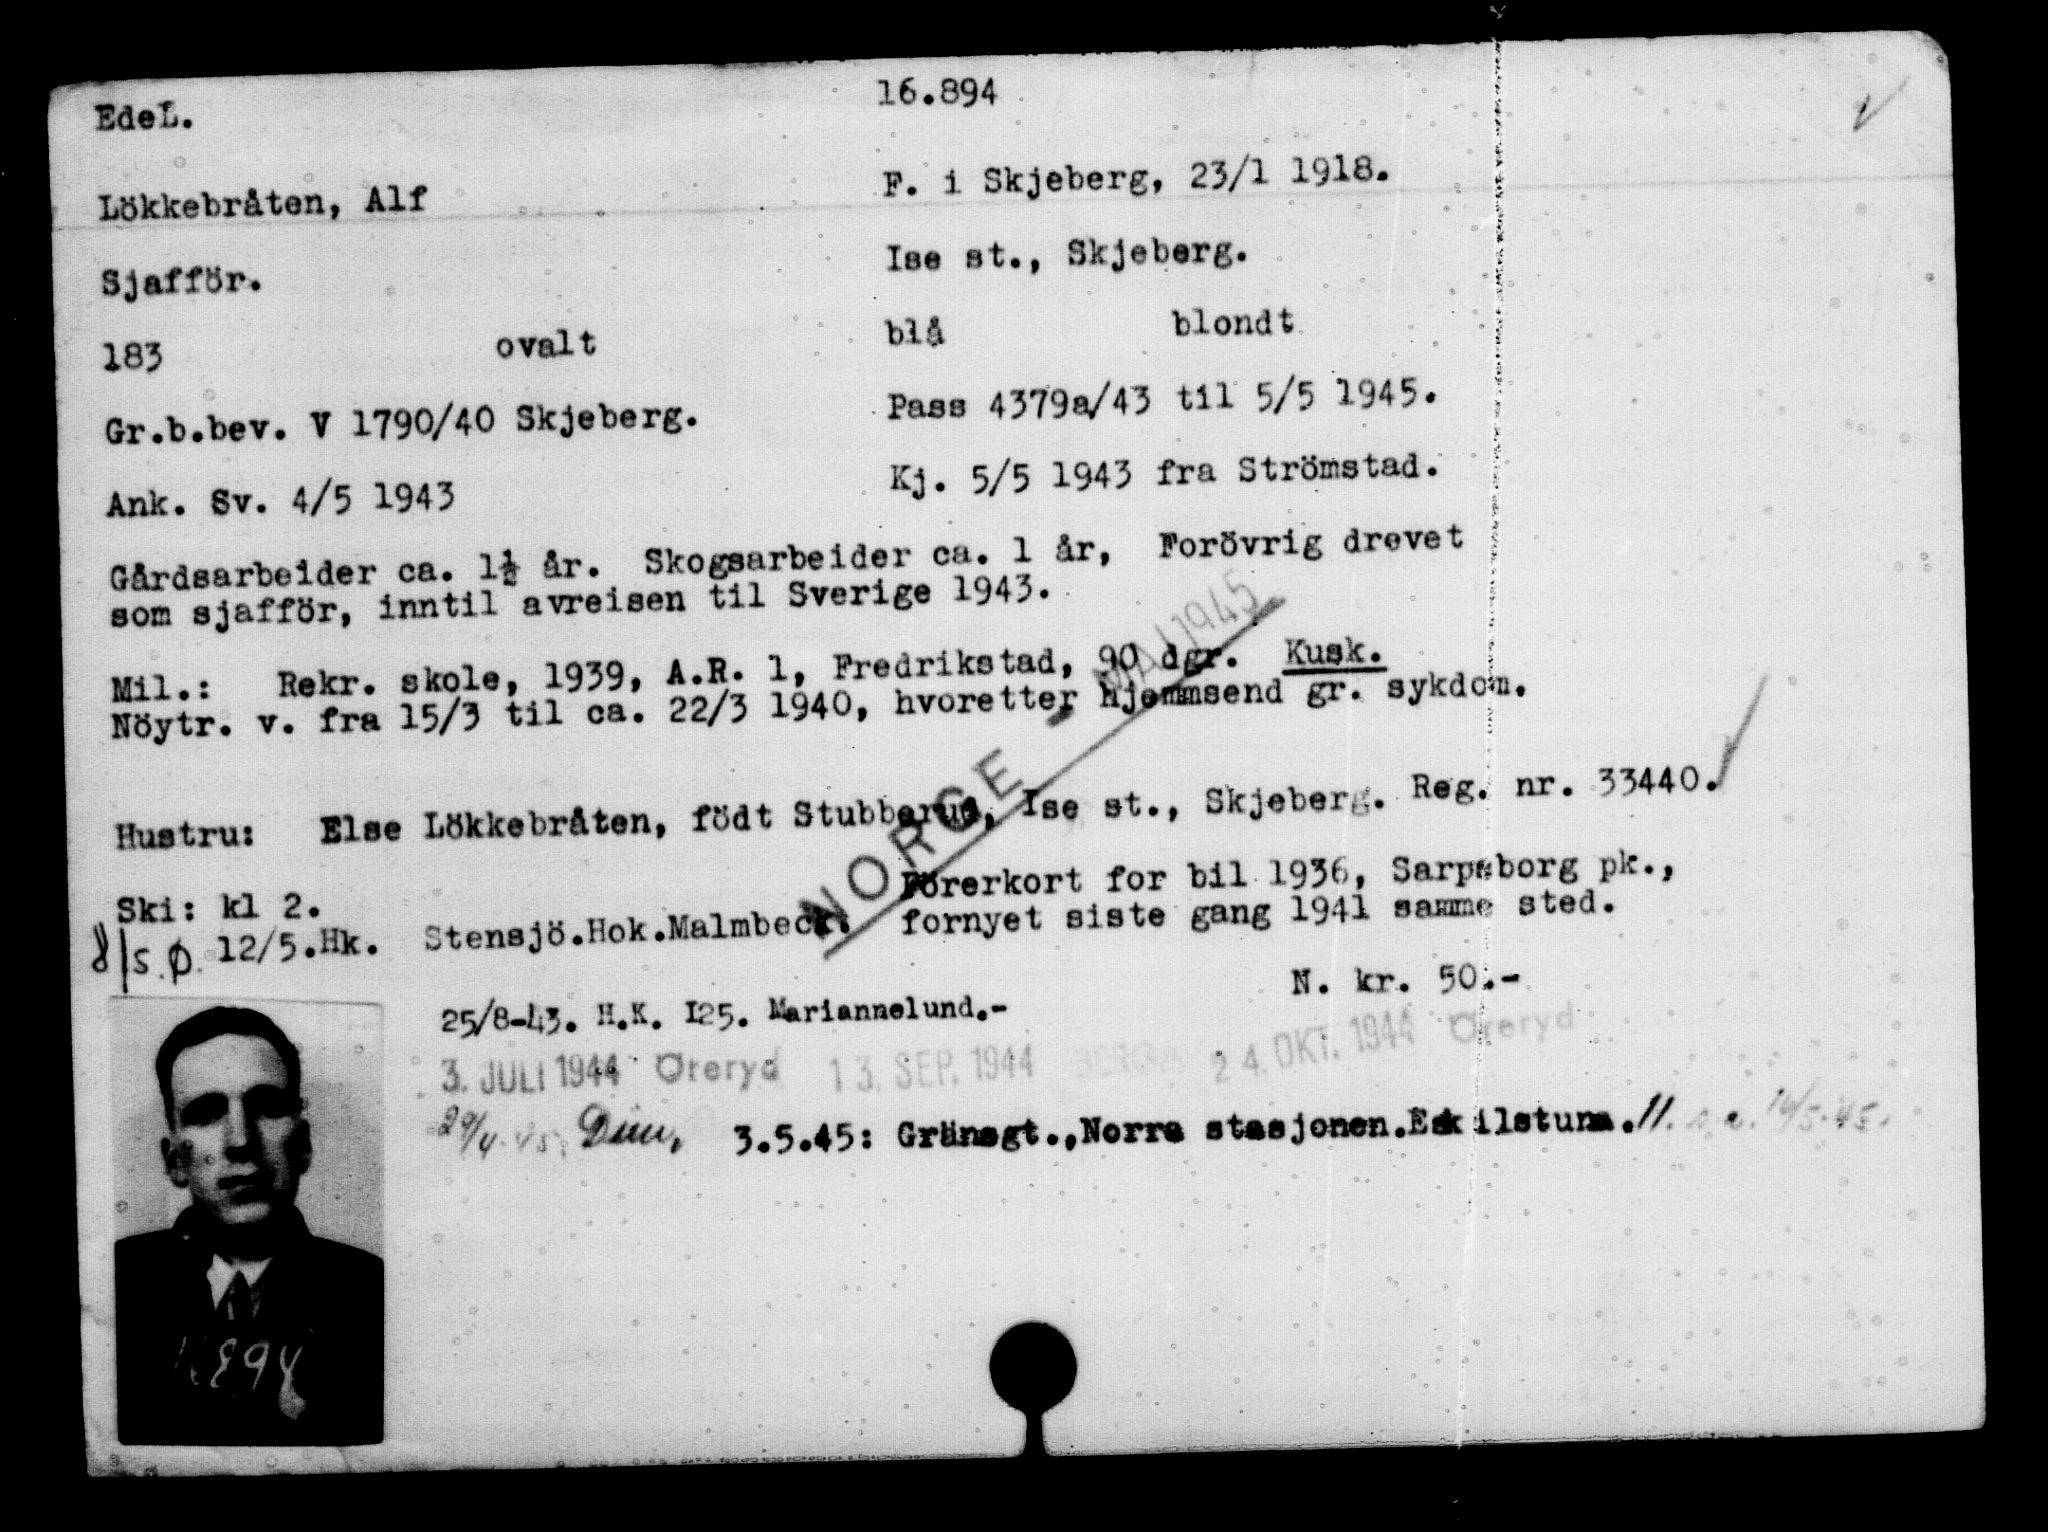 EdeL. 16.894
Lökkebråten, Alf F. i Skjeberg, 23/1 1918.
Sjafför. Ise st., Skjeberg.
183 ovalt blå blondt
Gr.b.bev. V 1790/40 Skjeberg. Pass 4379a/43 til 5/5 1945.
Ank. Sv. 4/5 1943 Kj. 5/5 1943 fra Strömstad.
Gårdsarbeider ca. 1½ år. Skogsarbeider ca. 1 år, Forövrig drevet
som sjafför, inntil avreisen til Sverige 1943.
Mil.: Rekr. skole, 1939, A.R. 1, Fredrikstad, 90 dgr. Kusk.
Nöytr. v. fra 15/3 til ca. 22/3 1940, hvoretter hjemmsend gr. sykdom.
NORGE - MAI 1945
Hustru: Else Lökkebråten, födt Stubberud, Ise st., Skjeberg. Reg. nr. 33440.
Ski: kl 2. Förerkort for bil 1936, Sarpsborg pk.,
S.Ø. 12/5.Hk. Stensjö.Hok.Malmbeck. fornyet siste gang 1941 samme sted.
N. kr. 50.-
25/8-43. H.K. I25. Mariannelund.-
3. JULI 1944 Öreryd 13. SEP. 1944 24. OKT. 1944 Öreryd
29/4-45: 3.5.45: Gränsgt.,Norra stasjonen.Eskilstuna. 14/5-45.
16894